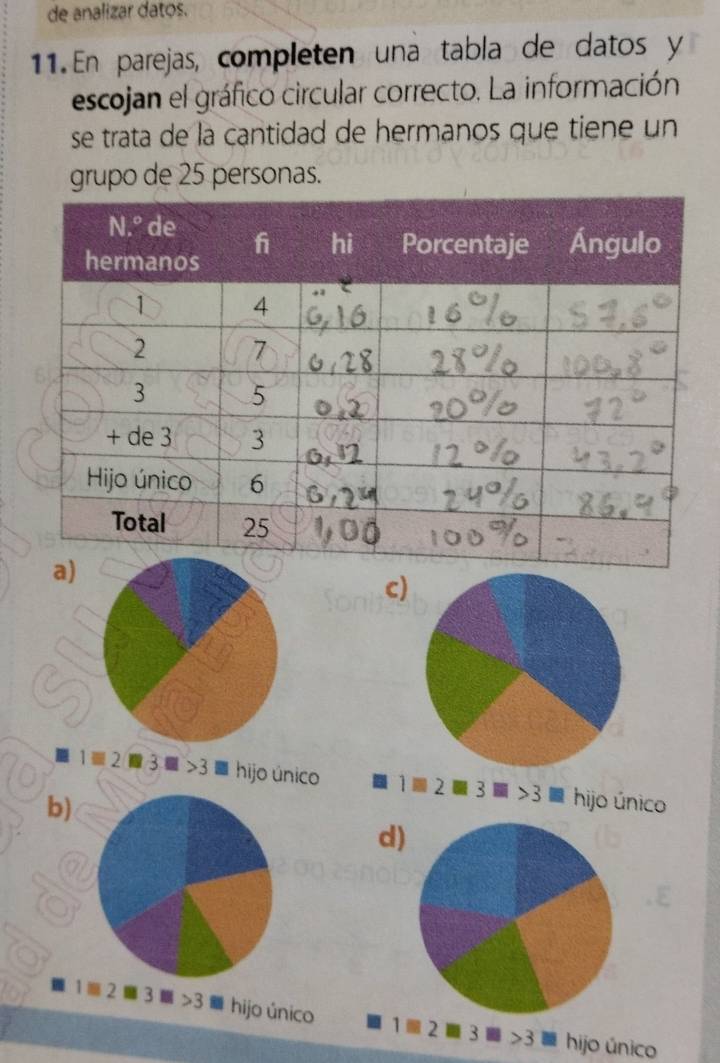 de analizar datos.
11. En parejas, completen una tabla de datos y
escojan el gráfico circular correcto. La información
se trata de la cantidad de hermanos que tiene un
grupo de 25 personas.
N.º de hermanos fi hi Porcentaje Ángulo
1 4 0,16 16% 57,6°
2 7 0,28 28% 100,8°
3 5 0,2 20% 72°
+ de 3 3 0,12 12% 43,2°
Hijo único 6 0,24 24% 86,4°
Total 25 1,00 100%
a)
c)
1 2 3 >3 hijo único
1 2 3 >3 hijo único
b)
d)
1 2 3 >3 hijo único
1 2 3 >3 hijo único